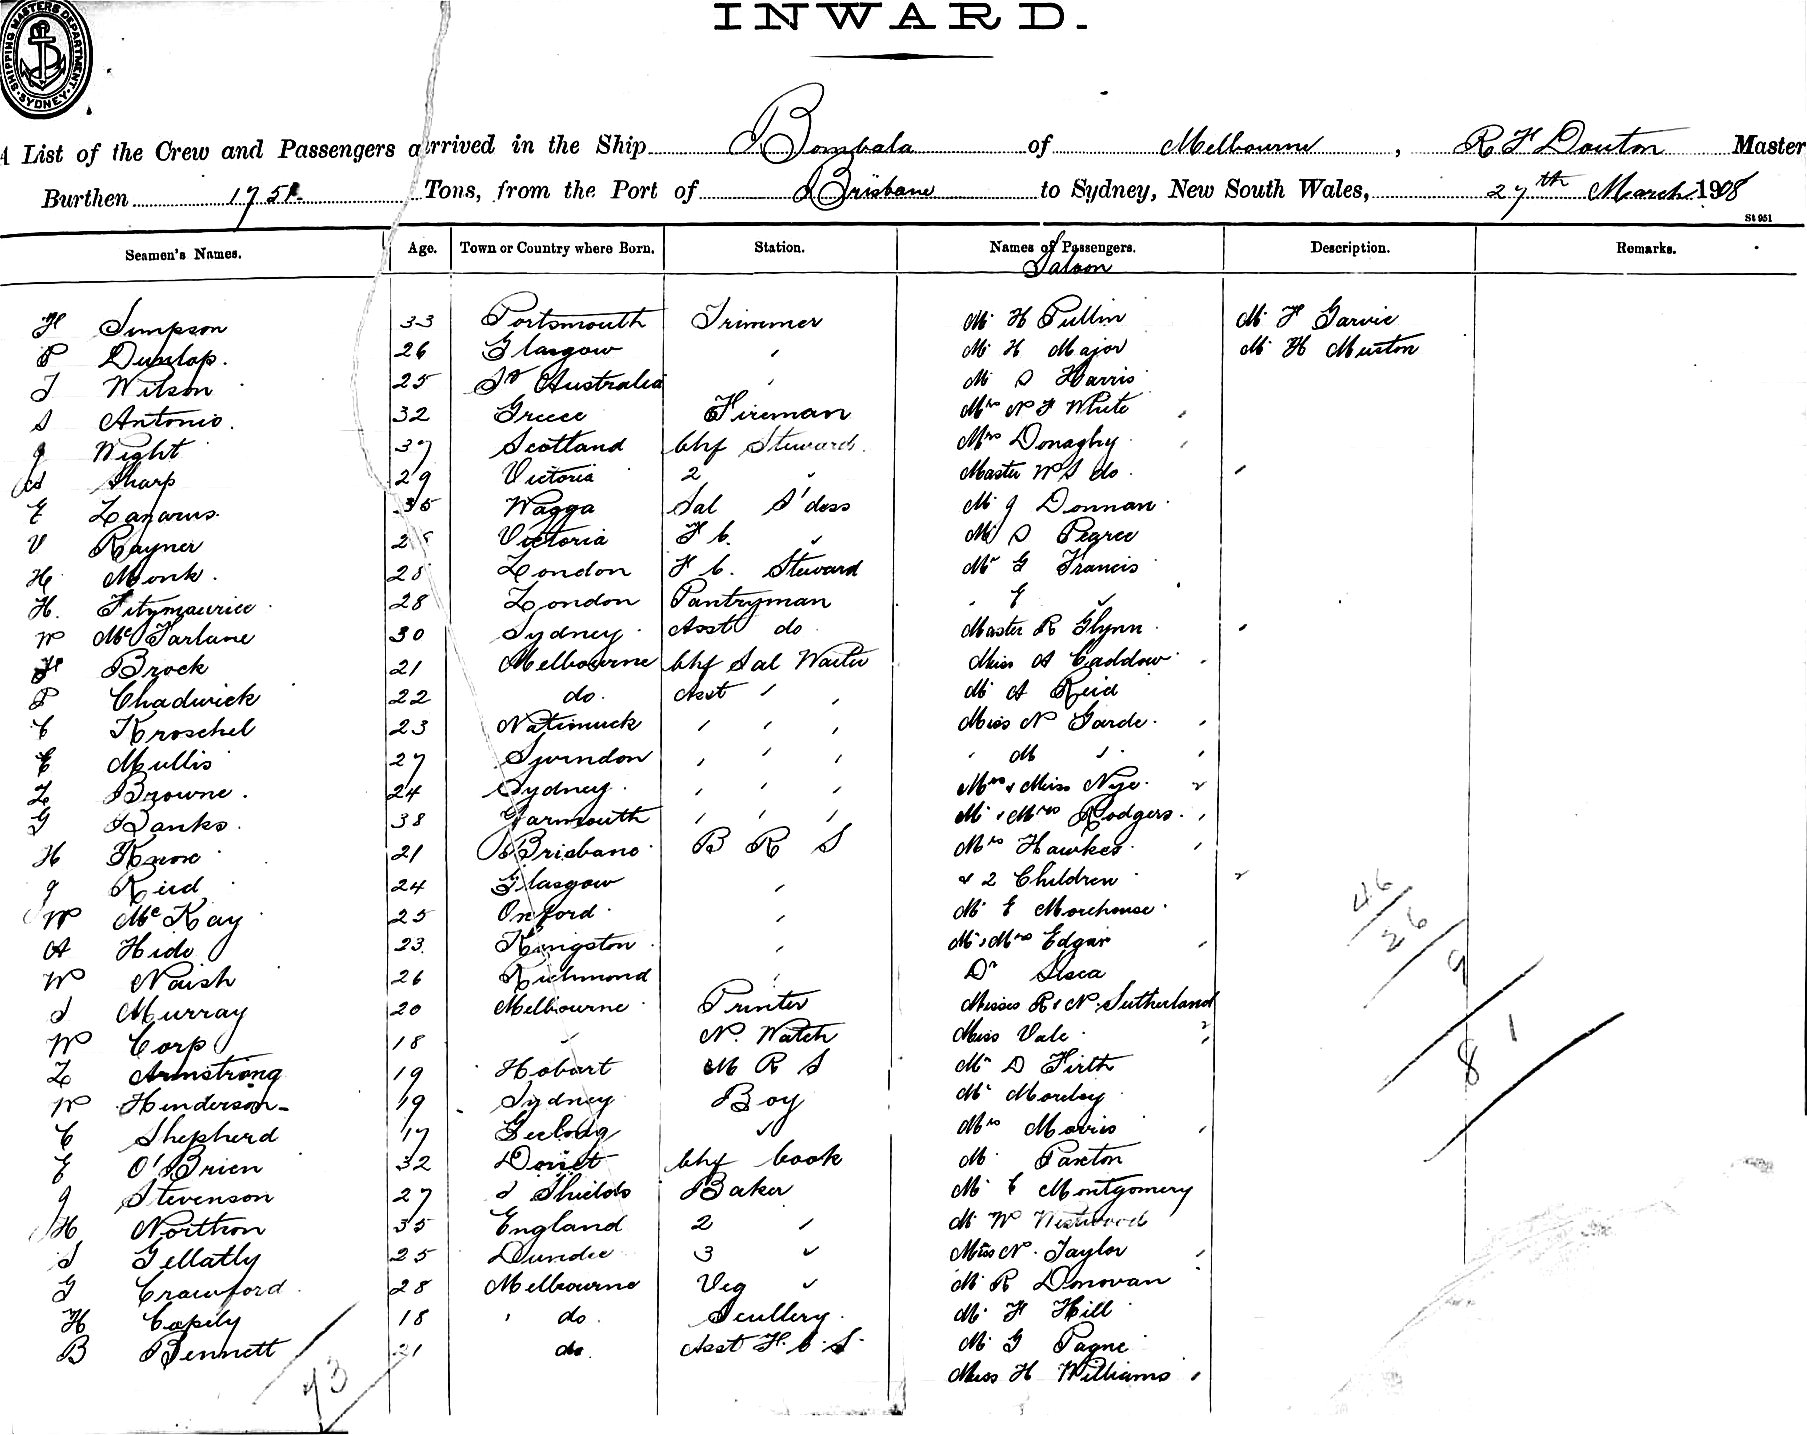 SHIPPING MASTERS DEPARTMENT SYDNEY
INWARD.
A List of the Crew and Passengers arrived in the Ship Bombala of Melbourne, R F Douton Master
Burthen 1751 Tons, from the Port of Brisbane to Sydney, New South Wales, 27th March 1908
St 951
Seamen's Names. Age. Town or Country where Born. Station. Names of Passengers. Description. Remarks.
Saloon
H Simpson 33 Portsmouth Trimmer Mr H Pullin Mr F Garvie
P Dunlop. 26 Glasgow " Mr H Major Mr H Murton
J Wilson 25 Sth Australia " Mr S Harris
S Antonio. 32 Greece Fireman Mrs N F White
J Wight 37 Scotland Chf Steward. Mrs Donaghy
Sharp 29 Victoria 2 " Master W S do
E Lazarus 35 Wagga Sal S'dess Mr J Donnan
V Rayner Victoria F C. " Mr S Pegree
H Monk. 28 London F C. Steward Mr G Francis
H. Fitzmaurice 28 London Pantryman " E "
W McFarlane 30 Sydney Asst do Master R Glynn
H Brock 21 Melbourne Chf Sal Waiter Miss A Caddow
P Chadwick 22 do. Asst " " Mr A Reid
C Kroschel 23 Natimuck " " " Miss N Garde
E Mullis 27 Swindon " " " " M "
L Browne. 24 Sydney " " " Mrs & Miss Nye
G Banks. 38 Yarmouth " " " Mr & Mrs Rodgers
H Knox 21 Brisbane B R S Mrs Hawkes
J Reid 24 Glasgow " & 2 Children
W McKay 25 Oxford " Mr E Morehouse
A Hide 23 Kingston " Mr & Mrs Edgar
W Naish 26 Richmond " Dr Lisca
J Murray 20 Melbourne Printer Misses R & N Sutherland
W Corp 18 " N. Watch Miss Vale
L Armstrong 19 Hobart M R S Mr D Firth
W Henderson 19 Sydney Boy Mr Moreby
C Shepherd 17 Geelong " Mrs Morris
E O'Brien 32 Dorset Chf Cook Mr Paxton
J Stevenson 27 S Shields Baker Mr C Montgomery
H Northon 35 England 2 " Mr W Westwood
J Gellatly 25 Dundee 3 " Miss N. Taylor
G Crawford 28 Melbourne Veg " Mr R Donovan
H Copily 18 " do Scullery. Mr F Hill
B Bennett 21 do. Asst F. C. S. Mr G Payne
Miss H Williams
46
26
9
81
73